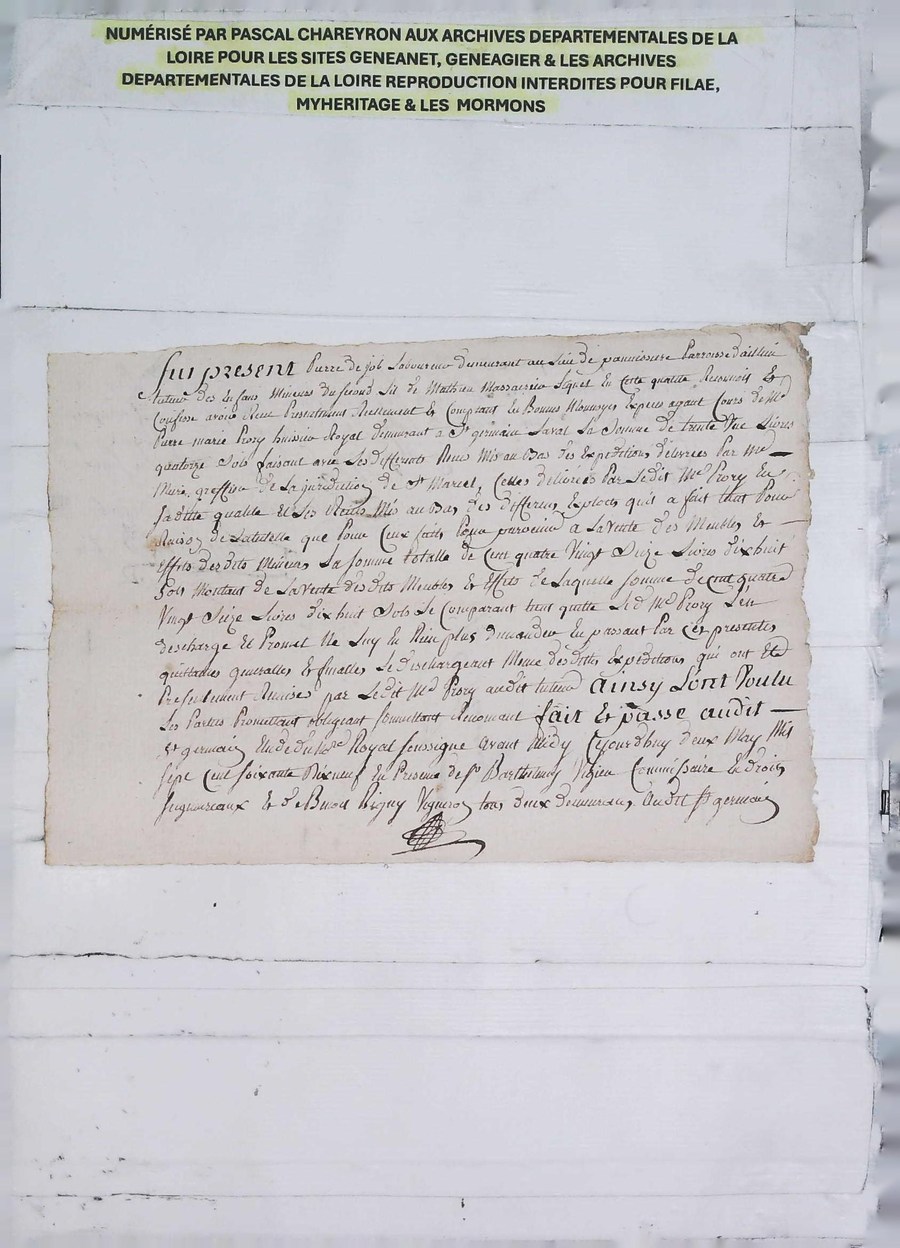 NUMÉRISÉ PAR PASCAL CHAREYRON AUX ARCHIVES DEPARTEMENTALES DE LA
LOIRE POUR LES SITES GENEANET, GENEAGIER & LES ARCHIVES
DEPARTEMENTALES DE LA LOIRE REPRODUCTION INTERDITES POUR FILAE,
MYHERITAGE & LES MORMONS
fut present Pierre de job Laboureur demeurant au Lieu de parroisse dailleu
tuteur des Enfans Mineurs du second Lit de Mathieu Lequel En Cette qualite Reconnois Et
Confesse avoir Receu Presentement Reellement Et Comptant En Bonnes Monnoyes Especes ayant Cours de Me
Pierre marie Prory huissier Royal demeurant a St germain Laval La Somme de trente Livres
quatorze Sols faisant avec Les differents Receus Mis au Bas des Expeditions delivrées Par Me
greffier de La jurediction de St Marcel, Celles delivrées Par Ledit Me Prory En
Sadite qualité Et Les Receus Mis au Bas des differens Exploits quil a fait tant Pour
Raison de La tutelle que Pour Ceux faits Pour parvenir a La Vente des Meubles Et
Effets desdits Mineurs La Somme totalle de Cent quatre Vingt Seize Livres dix huit
Sols Montant de La Vente desdits Meubles Et Effets de Laquelle Somme de Cent quatre
Vingt Seize Livres dix huit Sols Le Comparant tient quitte Led Me Prory L'en
descharge Et Promet Ne Luy En Rien plus demander En passant Par Ces presentes
quittances generalles Et finalles Le deschargeant Meme desdittes Expeditions qui ont Eté
Presentement Remises par Ledit Me Prory audit tuteur Ainsy Lont Voulu
Les Parties Promettant obligeant Soumettant Renoncant fait Et passé audit
St germain Etude du Nore Royal soussigné avant Midy Cejourdhuy deux May Mil
Sept Cent Soixante Dixneuf En Presence de Sr Barthelemy Commissaire En droits
Seigneuriaux Et de Benoit Vigneron tous deux demeurans Audit St germain